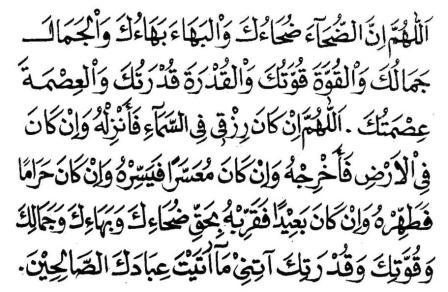 اَللّٰهُمَّ اِنَّ الضُّحَآءَ ضُحَاءُكَ وَالْبَهَاءَ بَهَاءُكَ وَالْجَمَالَ
جَمَالُكَ وَالْقُوَّةَ قُوَّتُكَ وَالْقُدْرَةَ قُدْرَتُكَ وَالْعِصْمَةَ
عِصْمَتُكَ . اَللّٰهُمَّ اِنْ كَانَ رِزْقِى فِى السَّمَآءِ فَأَنْزِلْهُ وَاِنْ كَانَ
فِى اْلاَرْضِ فَأَخْرِجْهُ وَاِنْ كَانَ مُعَسَّرًا فَيَسِّرْهُ وَاِنْ كَانَ حَرَامًا
فَطَهِّرْهُ وَاِنْ كَانَ بَعِيْدًا فَقَرِّبْهُ بِحَقِّ ضُحَاءِكَ وَبَهَاءِكَ وَجَمَالِكَ
وَقُوَّتِكَ وَقُدْرَتِكَ آتِنِىْ مَآاَتَيْتَ عِبَادَكَ الصَّالِحِيْنَ .